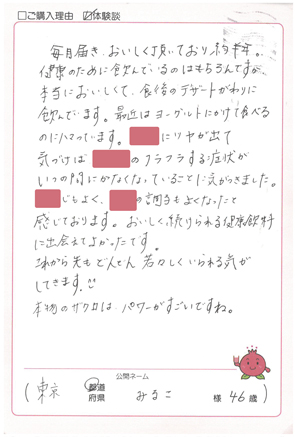 □ご購入理由 ☑体験談
毎月届き、おいしく頂いており約半年。
健康のために飲んでいるのはもちろんですが、
本当においしくて、食後のデザートがわりに
飲んでいます。最近はヨーグルトにかけて食べる
のにハマっています。 にツヤが出て
気づけば のフラフラする症状が
いつの間にかなくなっていることに気がつきました。
じもよく、 の調子もよくなったと
感じております。おいしく続けられる健康飲料
に出会えてよかったです。
これから先もどんどん若々しくいられる気が
してきます。
本物のザクロは、パワーがすごいですね。
公開ネーム
(東京 都道府県 みるこ 様 46歳)